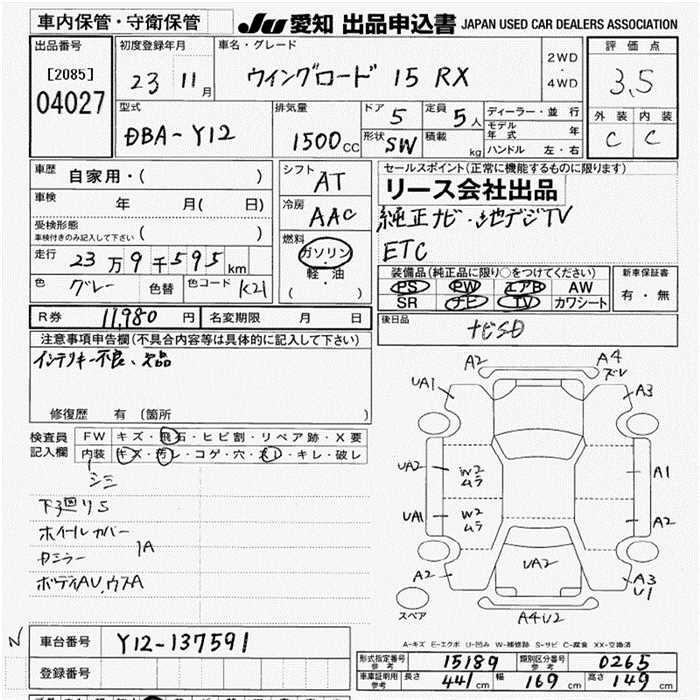 車内保管・守衛保管
JU 愛知 出品申込書 JAPAN USED CAR DEALERS ASSOCIATION
出品番号
[2085]
04027
初度登録年月
23 11月
車名・グレード
ウイングロード 15 RX
2WD
・
4WD
評価点
3.5
外装 内装
C C
型式
DBA-Y12
排気量
1500cc
ドア 5
定員 5人
形状 SW
積載 kg
ディーラー・並行
モデル年式 年
ハンドル 左・右
車歴 自家用・( )
車検 年 月( 日)
受検形態
車検付きのみ記入して下さい ( )
走行 23万9千595km
色 グレー 色替 色コード K21
シフト AT
冷房 AAC
燃料
ガソリン
・
軽・油
( )
セールスポイント(正常に機能するものに限ります)
リース会社出品
純正ナビ・地デジTV
ETC
装備品(純正品に限り○をつけてください)
PS PW エアB AW
SR ナビ TV カワシート
新車保証書
有・無
R券 11,980円
名変期限 月 日
後日品
ナビSD
注意事項申告欄(不具合内容等は具体的に記入して下さい)
インテリキー不良、欠品
修復歴 有 (箇所 )
検査員記入欄
FW キズ・飛石・ヒビ割・リペア跡・X要
内装 キズ・汚レ・コゲ・穴・スレ・キレ・破レ
シミ
下廻リS
ホイールカバー
カミラー 1A
ボディAU,ウスA
A2
A4
ズレ
UA1
A3
UA2
W2
ムラ
A1
UA1
W2
ムラ
A2
A2
UA2
A3
U1
スペア
A4U2
A-キズ E-エクボ U-凹み W-補修跡 S-サビ C-腐食 XX-交換済
N
車台番号 Y12-137591
登録番号
形式指定番号
参考
15189
類別区分番号
参考
0265
車庫証明用
参考
長さ 441cm 幅 169cm 高さ 149cm